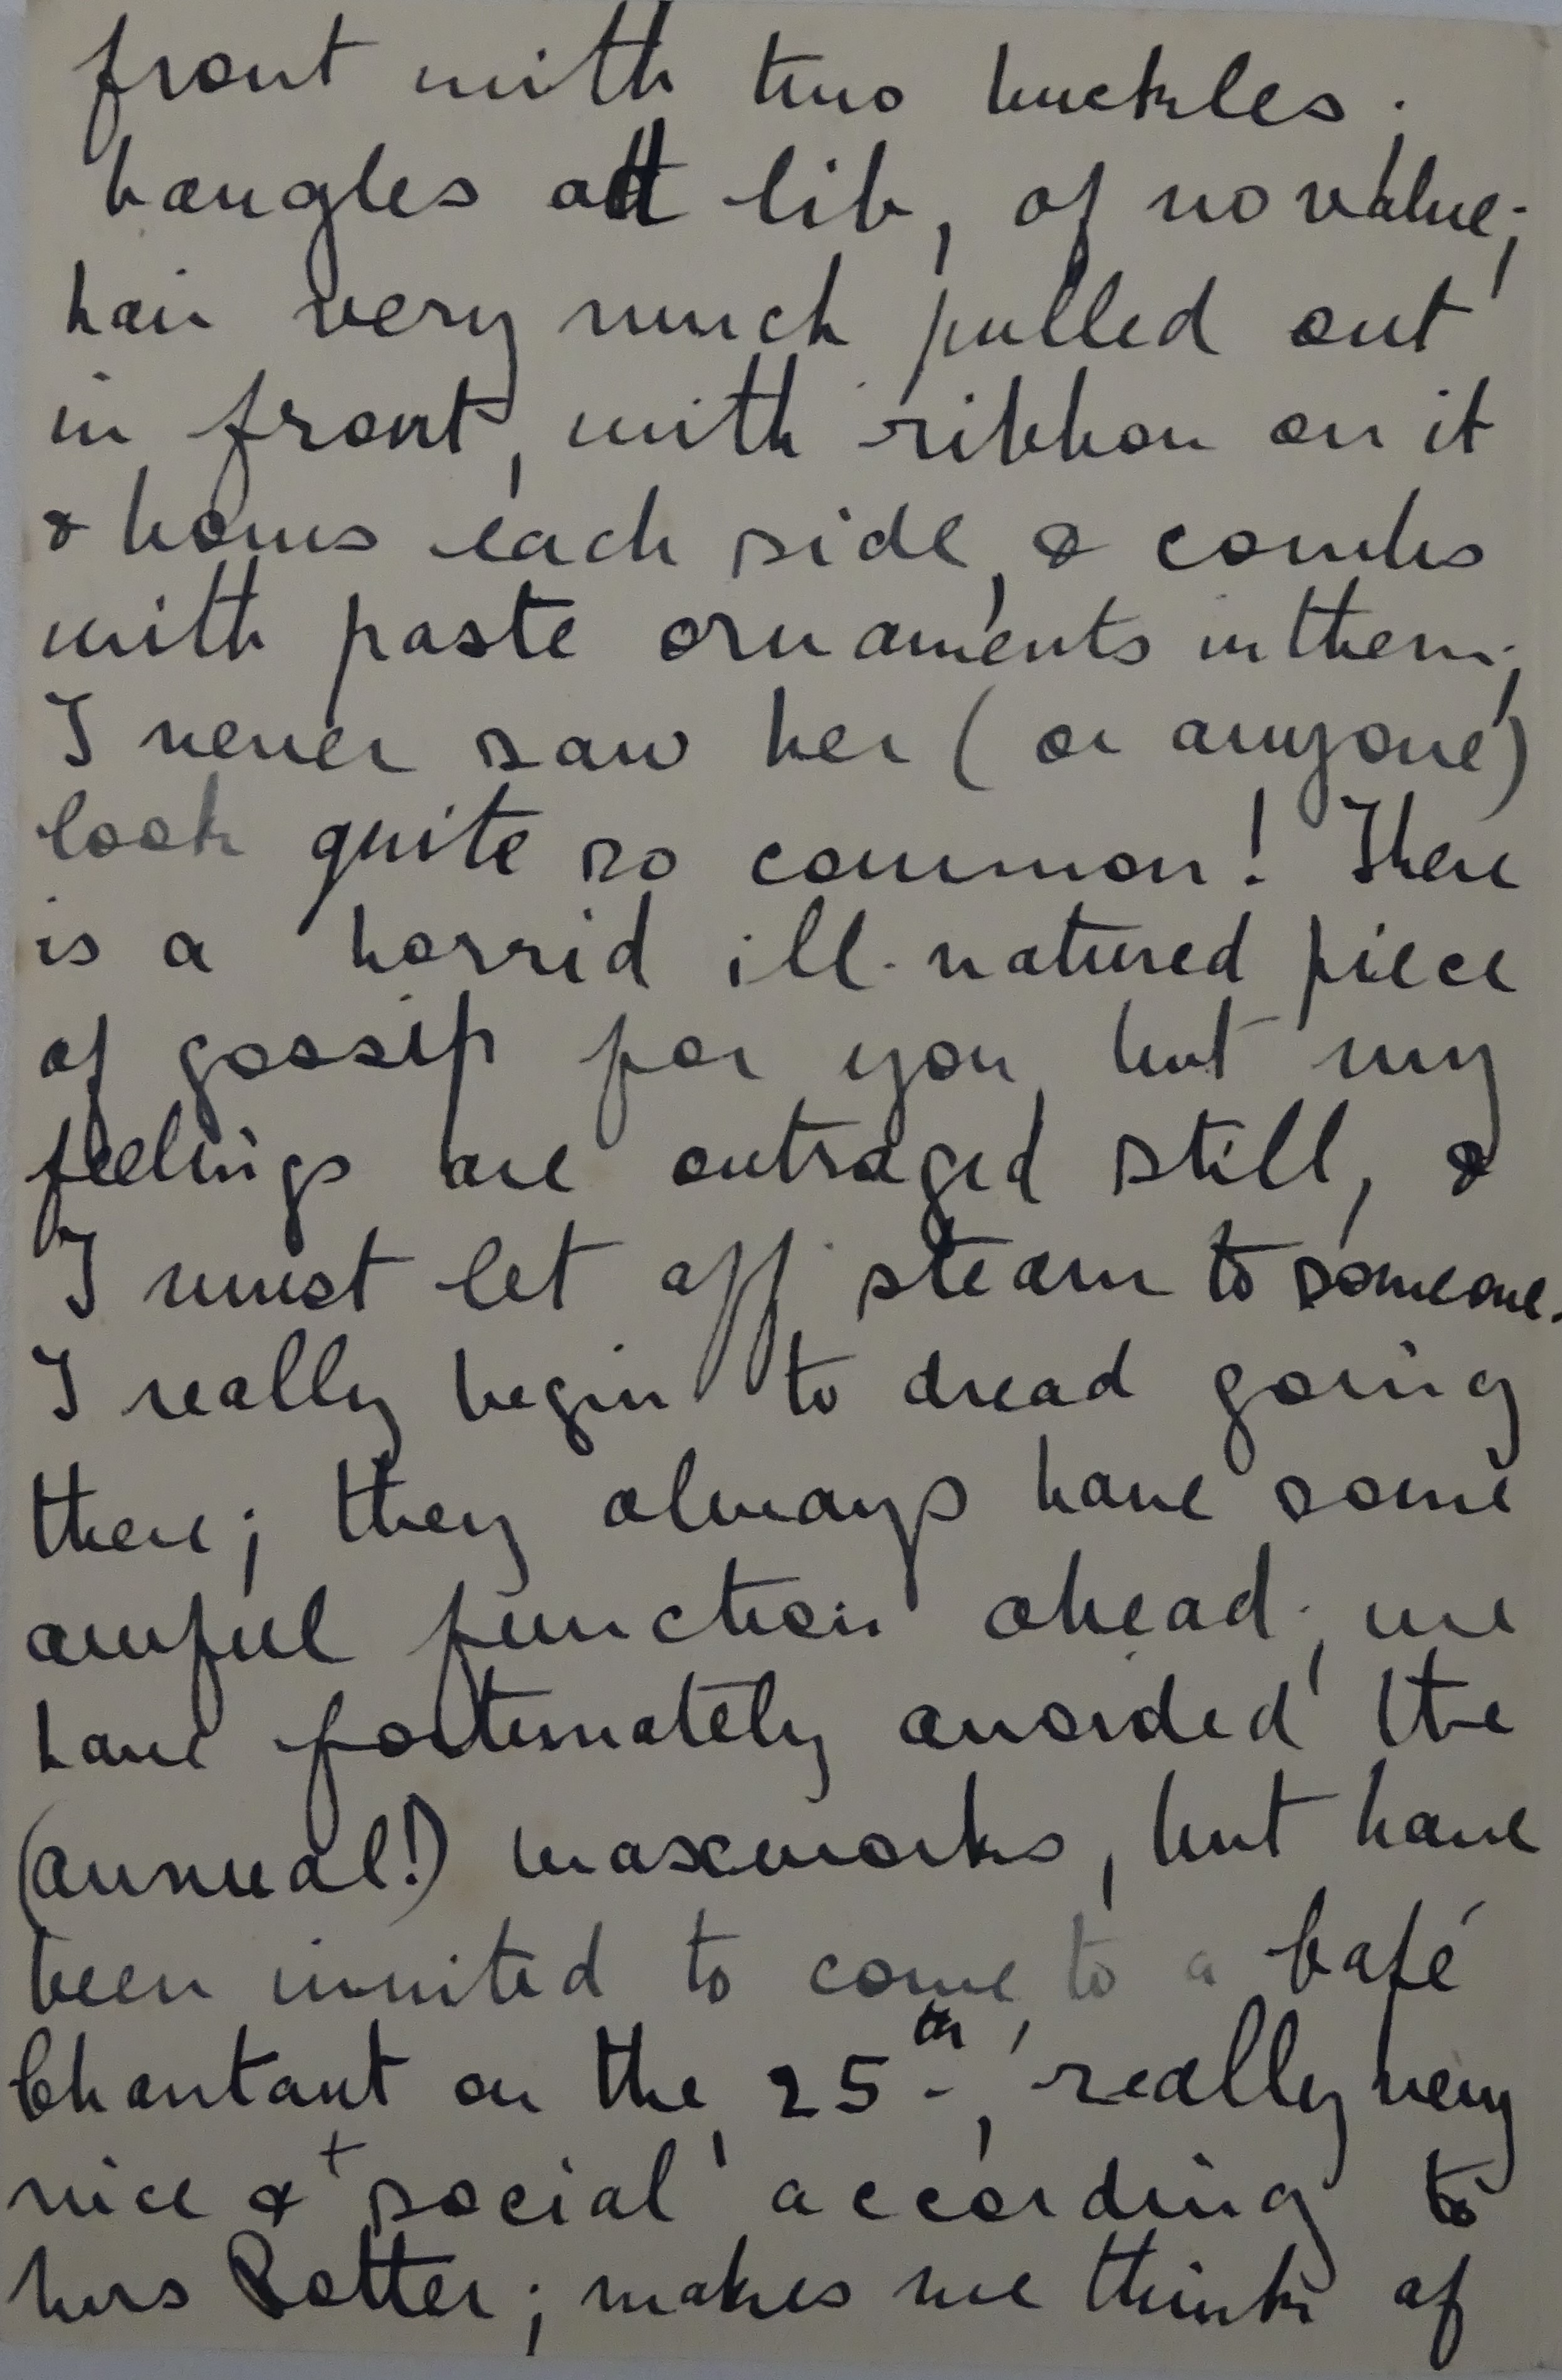 front with two buckles;
bangles ad lib, of no value;
hair very much pulled out
in front, with ribbon on it
& bows each side, & combs
with paste ornaments in them;
I never saw her (or anyone)
look quite so common! There
is a horrid ill-natured piece
of gossip for you, but my
feelings are outraged still, &
I must let off steam to someone.
I really begin to dread going
there; they always have some
awful function ahead; we
have fortunately avoided the
(annual!) waxworks, but have
been invited to come, to a Café
Chantant on the 25th, 'really very
nice & social' according to
Mrs Potter; makes me think of